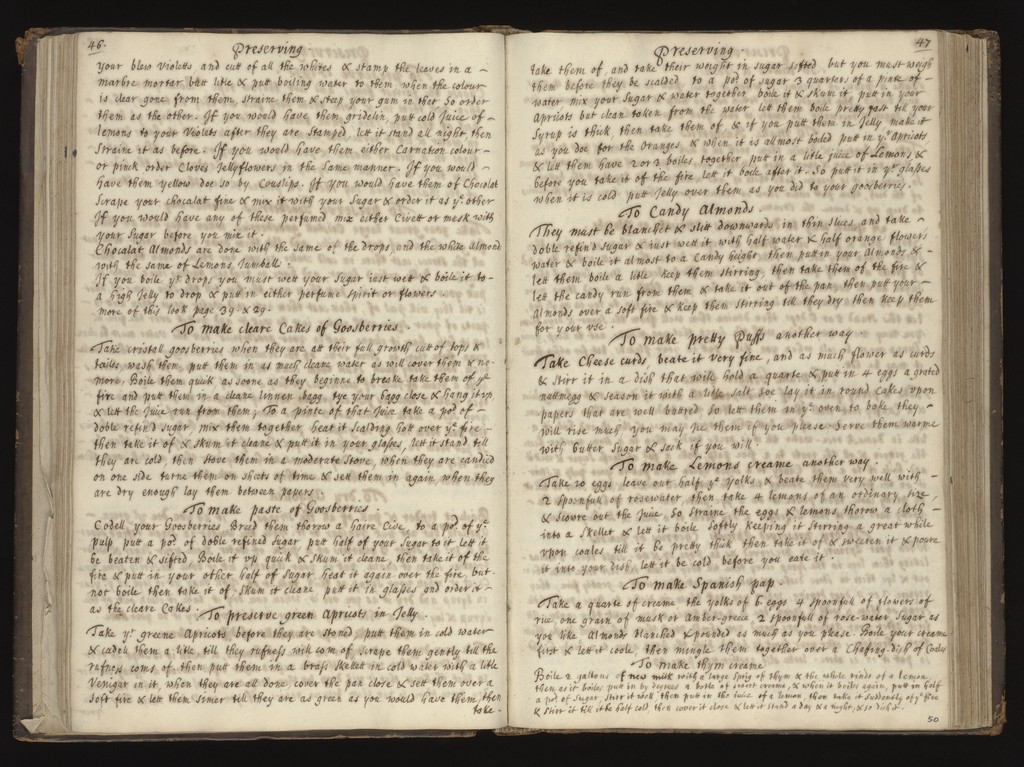 46.
Preserving
your blew Violetts and cut of all the whites & stamp the leaves in a
marbre mortar butt litle & put boiling water to them when the colour
is clear gone from them, straine them & steep your gum in ther So order
them as the other. If you would have them gridelin, putt cold Juice of
lemons to your Violets after they are Stamped, lett it stand all night then
Straine it as before. If you would have them either Carnation colour
or pinck order Cloves Jellyflowers in the Same manner. If you would
have them yellow doe so by Couslips. If you would have them of Chocolat
Scrape your chocalat fine & mix it with your Sugar & order it as yᵉ other
If you would have any of these perfumed mix either Civett or mesk with
your Sugar before you mix it.
Chocalat Almonds are done with the same of the drops, and the white almond
with the same of Lemons Jumball.
If you boile yᵉ drops you must wett your Sugar iust wett & boile it to
a high Jelly to drop & putt in either perfume Spirit or flowers.
more of this look page 39. & 29.
To make cleare Cakes of Goosberries.
Take cristall goosberries when they are att their full growth cutt of tops &
tailes wash them, putt them in as much cleane water as will cover them & no
more, Boile them quick as soone as they beginne to breake take them of yᵉ
fire and putt them in a cleane linnen bagg, tye your bagg close & hang it up
& lett the Juice run from them, To a pinte of that Juice take a poᵈ of
doble refind sugar, mix them together, heat it scalding hott over yᵉ fire
then take it of & skum it cleane & putt it in your glasses, lett it stand till
they are cold, then stove them in a moderate stove, when they are candied
on one side turne them on sheets of time & sett them in again, when they
are dry enough lay them between papers
To make paste of Goosberries.
Codell your Goosberries Breed them thorow a haire Cive, to a poᵈ of yᵉ
pulp putt a poᵈ of doble refined sugar putt half of your Sugar to it lett it
be beaten & sifted Boile it up quick & skum it cleane, then take it of the
fire & putt in your other half of Sugar heat it again over the fire but
not boile then take it of skum it cleane putt it in glasses and order it
as the cleare Cakes.
To preserve green Apricots in Jelly.
Take yᵉ greene Apricots before they are Stoned, putt them in cold water
& cadell them a litle, till they rufness will com of Scrape them gently till the
rufness coms of. then putt them in a brass skellet in cold water with a litle
Venigar in it, when they are all done, cover the pan close & sett them over a
soft fire & lett them simer till they are as green as you would have them, then
take
47
Preserving
take them of, and take their weight in sugar sifted but you must weigh
them before they be scalded to a poᵈ of sugar 3 quarters of a pinte of
water mix your Sugar & water together boile it & skum it, putt in your
Apricots but clean taken from the water lett them boile pretty fast till your
Syrup is thick, then take them of & if you putt them in Jelly make it
as you doe for the Oranges, & when it is allmost boiled putt in yᵉ Apricots
& lett them have 2 or 3 boiles together, putt in a litle juice of Lemons &
before you take it of the fire let it boile after it. So putt it in yᵉ glasses
when it is cold putt Jelly over them as you did to your goosberries.
To Candy Almonds.
They must be blanchet & slitt downwards in thin slices and take
doble refind Sugar & iust wett it with half water & half orange flowers
water & boile it almost to a Candy height, then putt in your Almonds &
lett them boile a litle keep them stirring, then take them of the fire &
lett the candy run from them & take it out of the pan then putt your
Almonds over a soft fire & keep them Stirring till they dry then keep them
for your vse.
To make pretty Puffs another way.
Take Cheese curds, beate it very fine, and as much flower as curds
& stirr it in a dish that will hold a quarte & putt in 4 eggs a grated
nuttmegg & season it with a litle Salt soe lay it in round Cakes upon
papers that are well buttred so lett them in yᵉ oven to bake they
will rise much you may Ice them if you please Serve them warme
with butter Sugar & sack if you will.
To make Lemons creame another way.
Take 10 eggs leave out half yᵉ yolks & beate them very well with
2 spoonfull of rosewater then take 4 lemons of an ordinary size,
& scwore out the Juice, so straine the eggs & lemons thorow a cloth
into a skellet & lett it boile softly keeping it stirring a great while
vpon coales till it be pretty thick then take it of & sweeten it & poure
it into your dish, lett it be cold before you eate it.
To make Spanish pap.
Take a quarte of creame the yolks of 6 eggs 4 spoonfull of flowers of
rice one grain of musk or Amber-greece 2 spoonfull of rose-water Sugar as
you like Almonds blanched & pounded as much as you please. Boile your creame
first & lett it coole, then mingle them together over a Chafing-dish of Coales
To make thym creame
Boile 2 gallons of new milk with a large sprig of thym & the whole rinds of a lemon,
then as it boiles putt in by degrees a botle of sweet creame, & when it boiles again, putt in half
a poᵈ of Sugar stirr it well then putt in the Juice of a lemon then take it suddenly of yᵉ fire
& stirr it till it be half cold, then cover it close & lett it stand a day & a night, & so dish it.
50